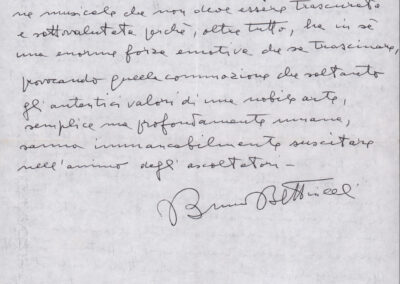 ne musicale che non deve essere trascurata
e sottovalutata perchè, oltre tutto, ha in sè
una enorme forza emotiva che sa trascinare,
provocando quella commozione che soltanto
gli autentici valori di una nobile arte,
semplice ma profondamente umana,
sanno immancabilmente suscitare
nell'animo degli ascoltatori –
Bruno Bettinelli